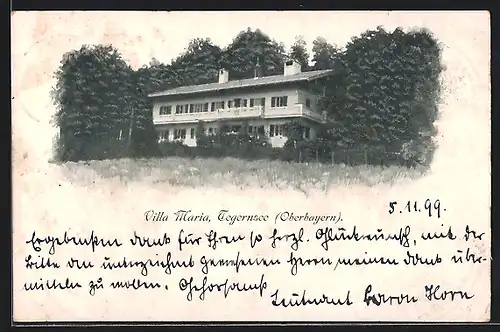 Villa Maria, Tegernsee (Oberbayern).
5.11.99.
Ergebensten dank für Ihren so herzl. Glückwunsch, mit der
Bitte den unterzeichnet gewesenen Herren meinen dank über-
mitteln zu wollen. Gehorsamst
Leutnant Baron Horn